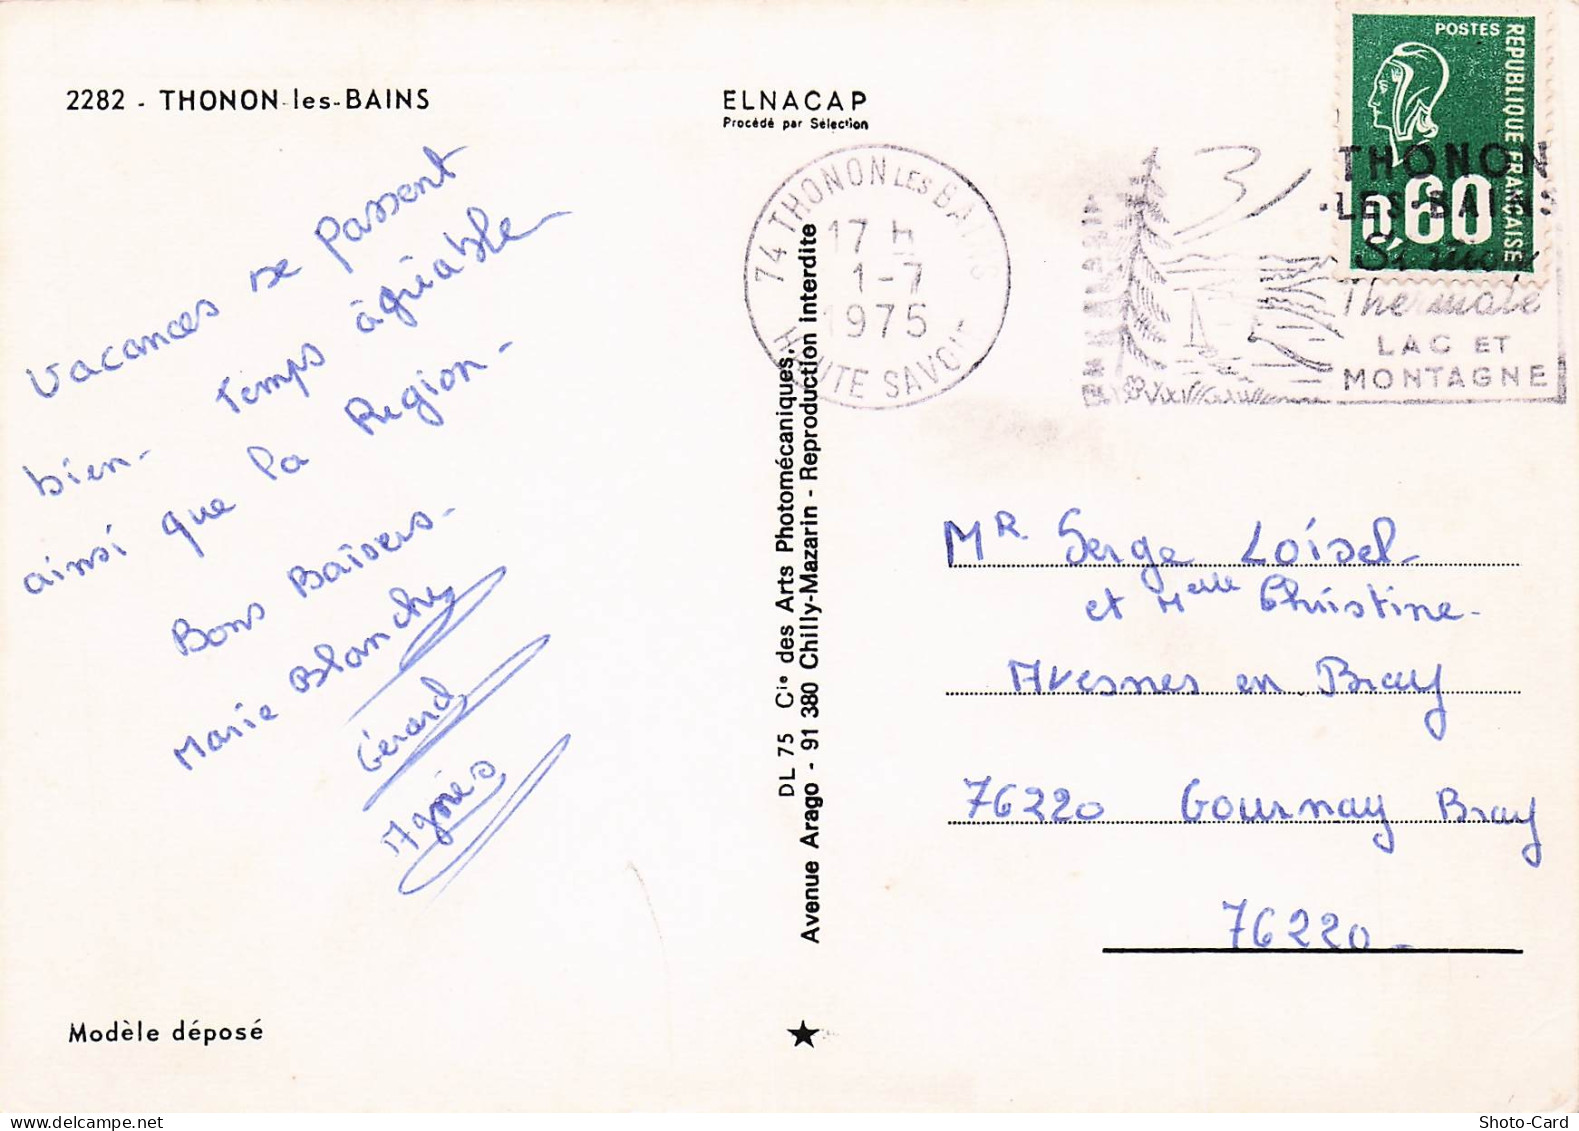 2282 - THONON-les-BAINS
ELNACAP
Procédé par Sélection
Vacances se passent
bien - Temps agréable -
ainsi que la Region -
Bons Baisers -
Marie Blanche
Gérard
Agnès
Modèle déposé
DL 75 Cie des Arts Photomécaniques,
Avenue Arago - 91 380 Chilly-Mazarin - Reproduction interdite
74 THONON LES BAINS
17 H
1-7
1975
HAUTE SAVOIE
POSTES
REPUBLIQUE FRANÇAISE
0,60
THONON
-LES-BAINS
Thermale
LAC ET
MONTAGNE
31
Mr. Serge Loisel -
et Melle Christine -
Avesnes en Bray
76220 Gournay Bray
76220 -
Shoto-Card